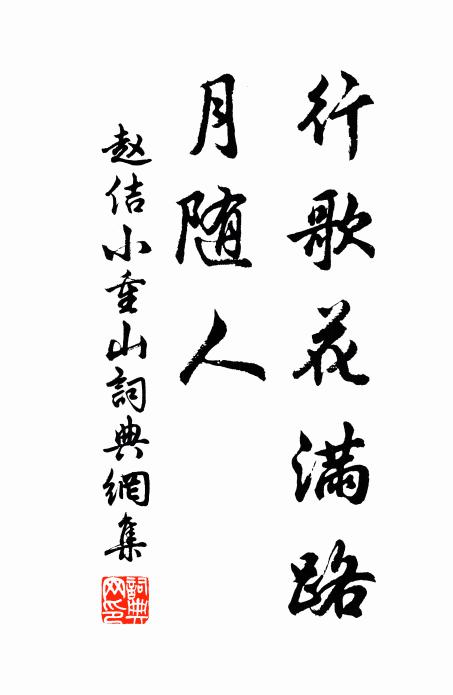 行歌花满路
月随人
赵佶小重山詞典網集
詞典网印